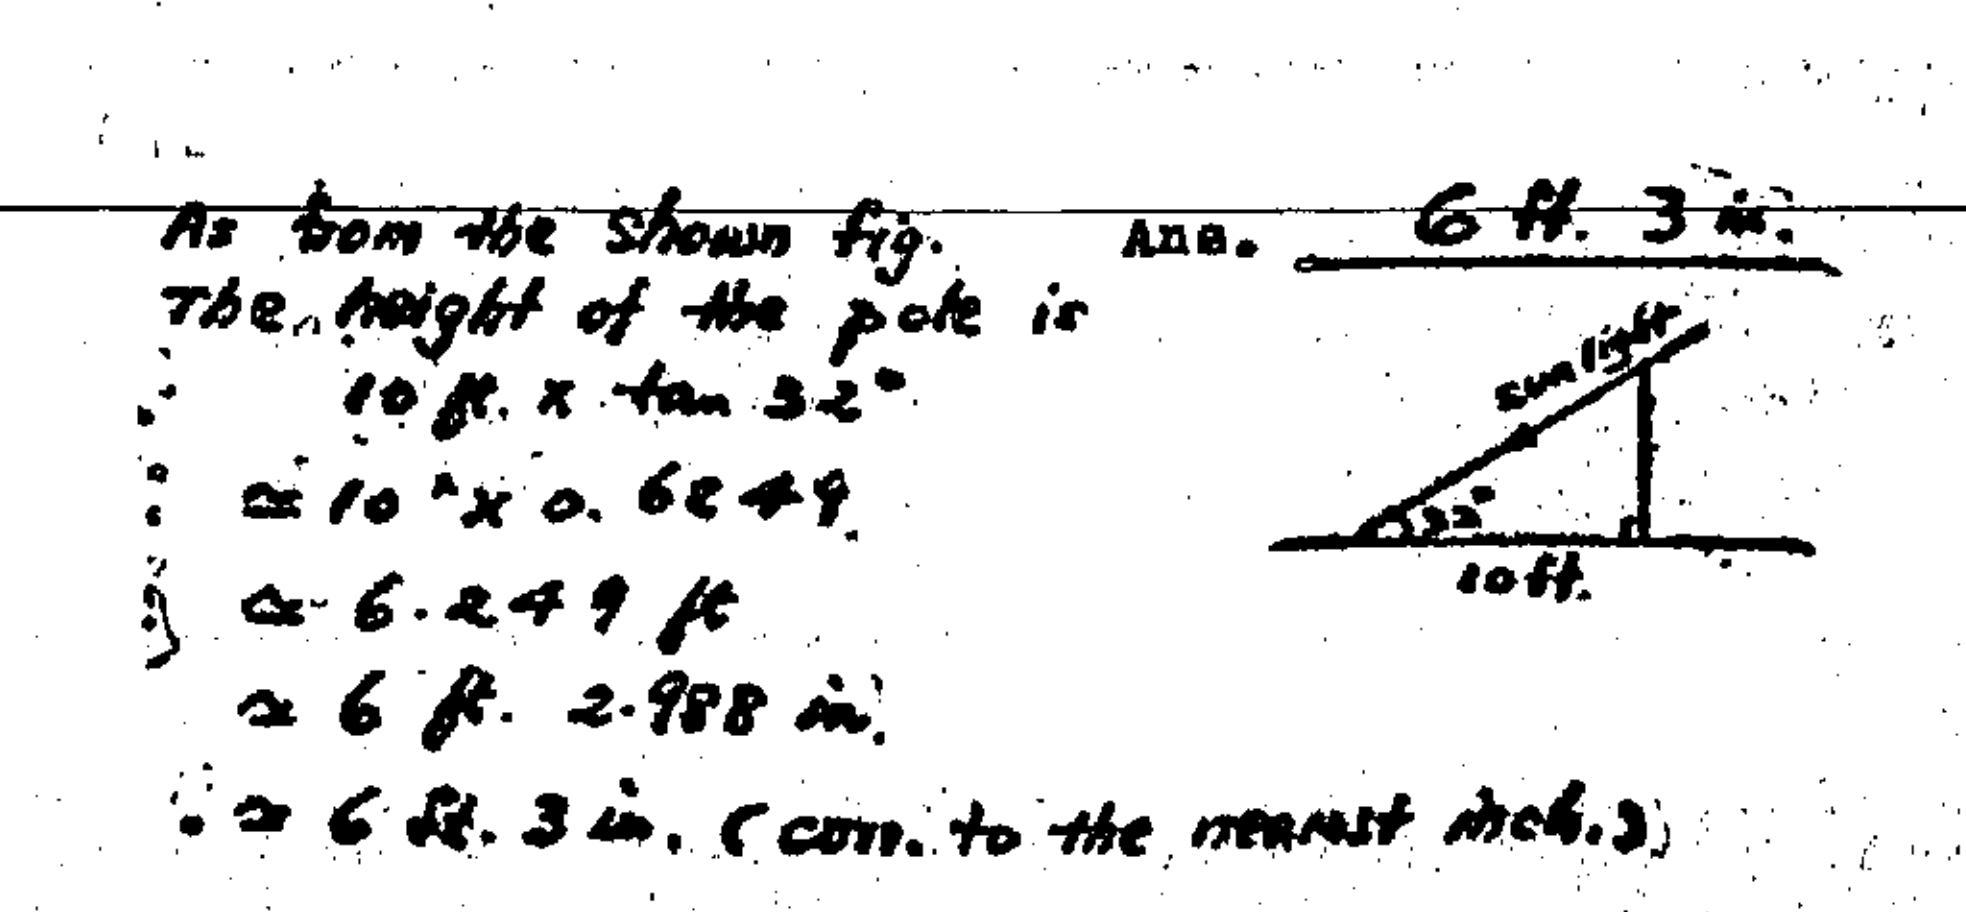 As from the shown fig.
Ans. 6 ft. 3 in.
The height of the pole is
10 ft. x tan 32°
≃ 10 x 0.6249
≃ 6.249 ft
≃ 6 ft. 2.988 in.
≃ 6 ft. 3 in. (corr. to the nearest inch.)
sunlight
32°
10 ft.